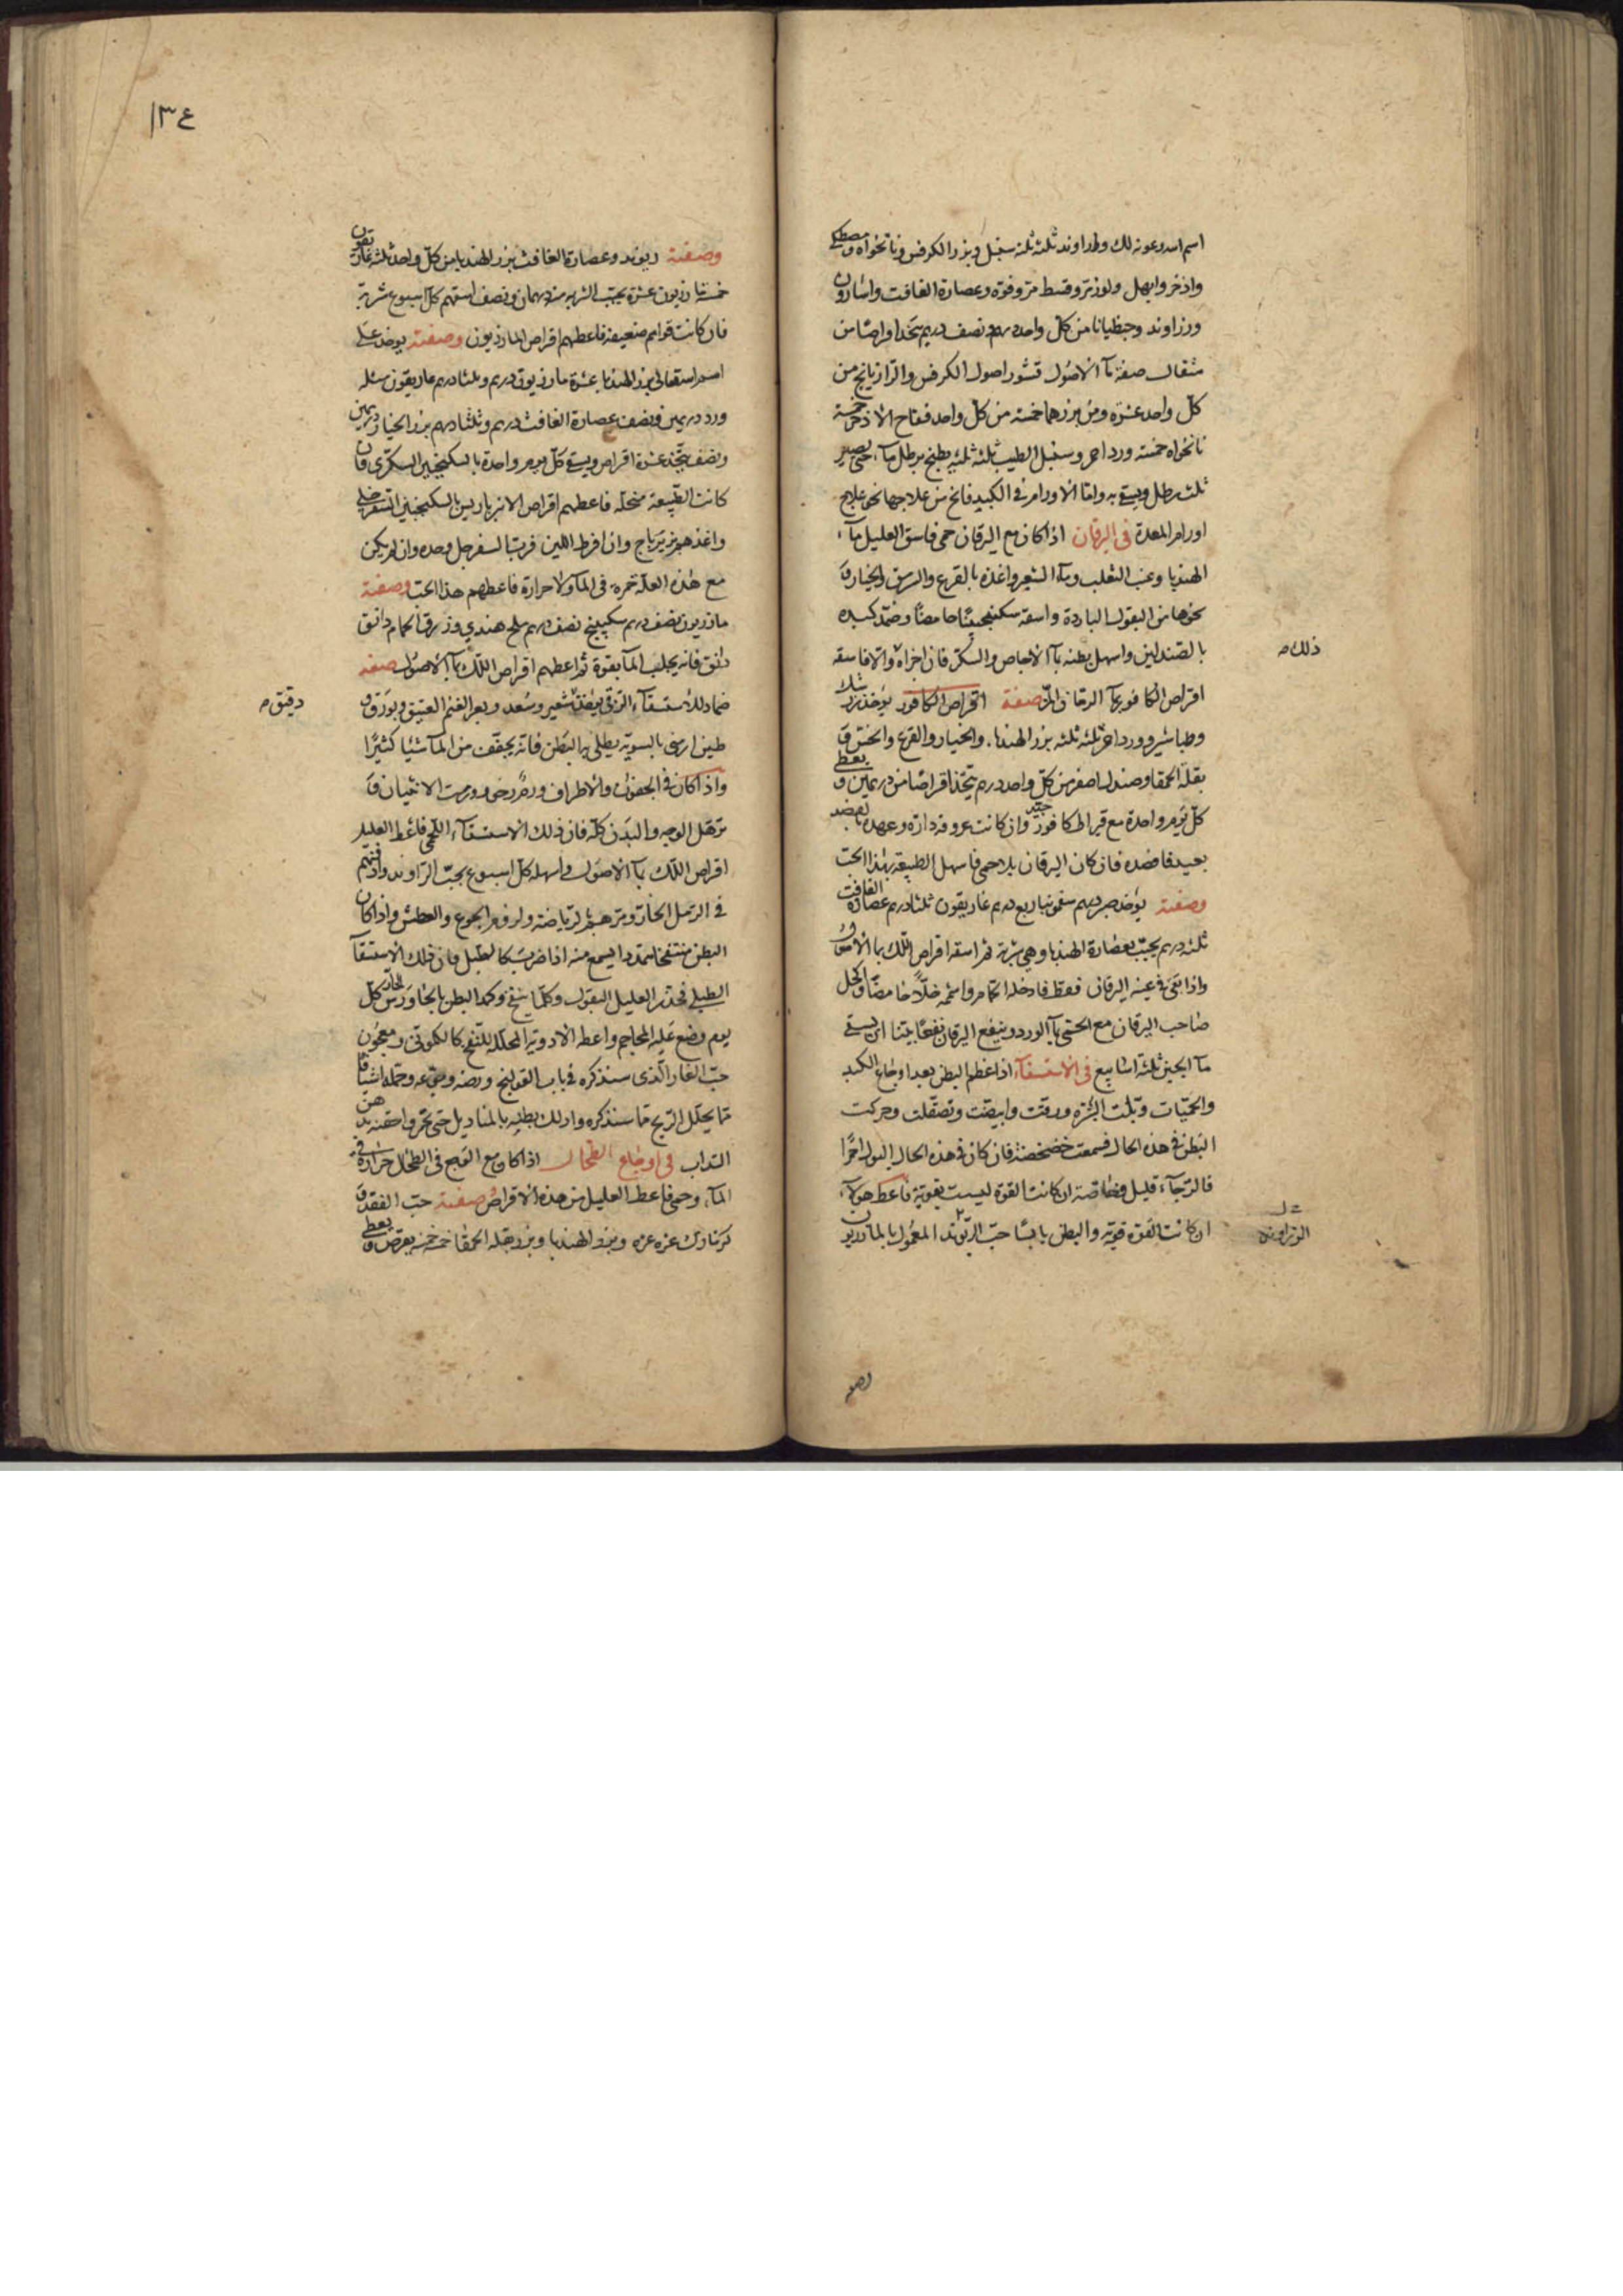 اسم الله وعونه لك وراوند ثلثه ثلثه سنبل وبزر الكرفس ونانخواه ومصطكى
واذخر وابهل ولوز مر وقسط مر وفوه وعصارة الغافت واسارون
وزراوند وجنطيانا من كل واحد درهم ونصف درهم يتخذ اقراصا من
مثقال صفة مآ الاصول قشور اصول الكرفس والرازيانج من
كل واحد عشرة ومن بزرهما خمسة من كل واحد فقاح الاذخر خمسة
نانخواه خمسة ورد احمر وسنبل الطيب ثلثه ثلثه يطبخ برطل مآء حتى يصير
ثلث رطل ويسقى به واما الاورام في الكبد فانح من علاجها نحو علاج
اورام المعدة في اليرقان اذا كان مع اليرقان حمى فاسق العليل مآء
الهندبا وعنب الثعلب ومآء الشعير واغذه بالقرع والسرمق والخيار و
نحوها من البقول الباردة واسقه سكنجبينًا حامضًا وضمد كبده
ذلك صح
بالصندلين واسهل بطنه بمآ الاجاص والسكر فان اجزاه والا فاسقه
اقراص الكافور بمآ الرمان المز صفة اقراص الكافور يؤخذ
وطباشير وورد احمر ثلثه ثلثه بزر الهندبا والخيار والقرع والخس و
بقلة الحمقا وصندل اصفر من كل واحد درهم يتخذ اقراصًا من درهمين ويعطى
كل يوم واحدة مع قيراط كافور جيد وان كانت عروقه دارة وعهده بالفصد
بعيد فافصده فان كان اليرقان بلا حمى فاسهل الطبيعة بهذا الحب
وصفته يؤخذ سقمونيا ربع درهم غاريقون ثلثا درهم عصارة الغافت
ثلثه درهم يحبب بعصارة الهندبا وهي شربة ثم اسقه اقراص اللك بمآ الاصول
واذا بقي في عينه اليرقان فقط فادخله الحمام واشمه خلًا حامضًا واكحل
صاحب اليرقان مع الحشى بمآ الورد وينفع اليرقان نفعًا بينا ان يسقى
مآ الجبن ثلثة اسابيع في الاستسقآء اذا عظم البطن بعد اوجاع الكبد
والحميات وتبلت البشرة ورقت وابيضت وتصقلت وحركت
البطن في هذه الحال فسمعت خضخضة فان كان في هذه الحال البول احمرًا
فالرجآء قليل وخاصة ان كانت القوة ليست بقوية فاعط هولآء
ان كانت القوة قوية والبطن يابسًا حب الريوند المعمول بالمازريون
الزراوند
وصفته
١٣٤
وصفته ريوند وعصارة الغافث بزر الهندبا من كل واحد ثلثه غاريقون
خمسة مازريون عشرة يحبب الشربه منه درهمان ونصف اسقهم كل اسبوع شربة
فان كانت قواهم ضعيفة فاعطهم اقراص المازريون وصفته يوخذ على
اسم الله تعالى بزر الهندبا عشرة مازريون درهم وثلثا درهم غاريقون مثله
ورد درهمين ونصف عصارة الغافث درهم وثلثا درهم بزر الخيار درهمين
ونصف يتخذ عشرة اقراص ويسقى كل يوم واحدة بالسكنجبين السكري فان
كانت الطبيعة منحلة فاعطهم اقراص الانبرباريس بالسكنجبين السفرجلي
واغذهم زيرباج وان افرط اللين فرب السفرجل وحده وان لم يكن
مع هذه العلة حمره في المآ ولا حرارة فاعطهم هذا الحب وصفته
مازريون نصف درهم سكبينج نصف درهم ملح هندي وذرق الحمام دانق
دانق فانه يجلب المآ بقوة ثم اعطهم اقراص اللك بمآ الاصول صفة
دقيق صح
ضماد للاستسقآء الزقي يؤخذ شعير وسعد وبعر الغنم العتيق وبورق و
طين ارمنى بالسوية يطلى به البطن فانه يجفف من المآ شيئا كثيرًا
واذا كان في الجفون والاطراف ورم رخو وورمت الانثيان و
ترهل الوجه والبدن كله فان ذلك الاستسقآء اللحمي فاعط العليل
اقراص اللك بمآ الاصول واسهله كل اسبوع بحب الراوند وادفنهم
في الرمل الحار ومرهم بالرياضة ولزوم الجوع والعطش واذا كان
البطن منتفخا متمددا يسمع منه اذا ضرب كالطبل فان ذلك الاستسقآ
الطبلي فحذر العليل البقول وكلما ينفخ وكمد البطن بالجاورس الحار كل
يوم وضع عليه المحاجم واعط الادوية المحللة للنفخ كالكموني ومعجون
حب الغار الذى سنذكره في باب القولنج ورضه وجوعه وحمله اشيافا
مما يحلل الريح مما سنذكره وادلك بطنه بالمناديل حتى تحمر واحقنه بدهن
السداب في اوجاع الطحال اذا كان مع الوجع في الطحال حرارة في
المآء وحمى فاعط العليل من هذه الاقراص صفته حب الفقد و
كزمازك عشرة عشرة وبزر الهندبا وبزر بقلة الحمقا خمسة خمسة يقرص ويعطى